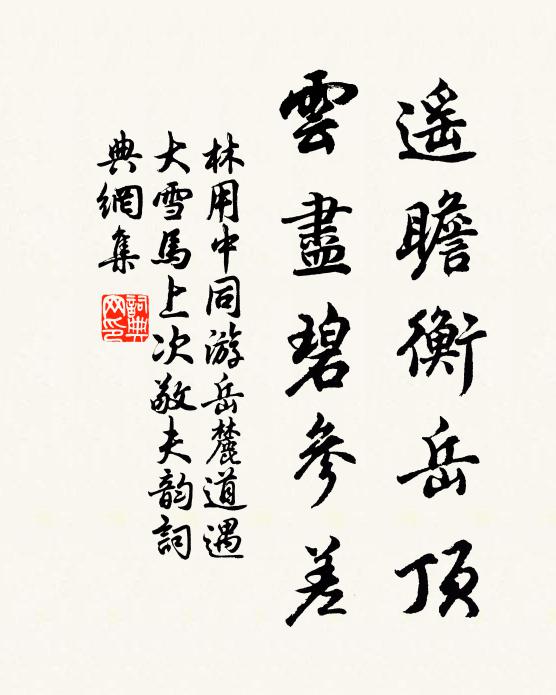 遥瞻衡岳頂
雲盡碧參差
林用中同游岳麓道遇
大雪馬上次敬夫韵詞
典網集
詞典网印